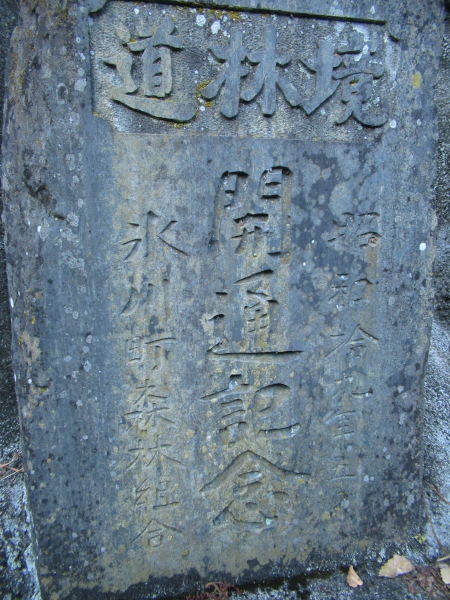 境林道
昭和拾九年五
開通記念
氷川町森林組合